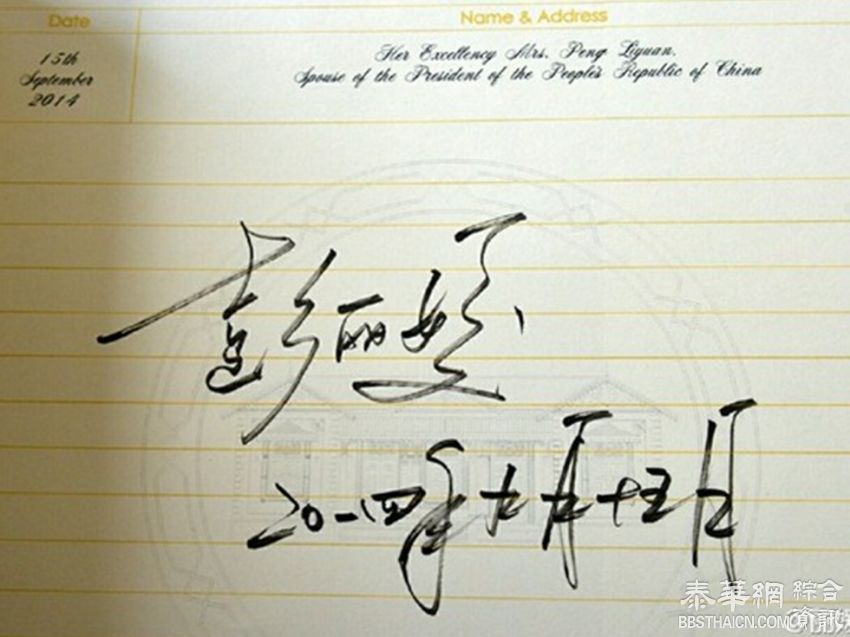 Date
Name & Address
15th
September
2014
Her Excellency Mrs. Peng Liyuan.
Spouse of the President of the People's Republic of China
彭丽媛
二〇一四年九月十五日
泰華網 綜合
資訊
BBSTHAICN.COM